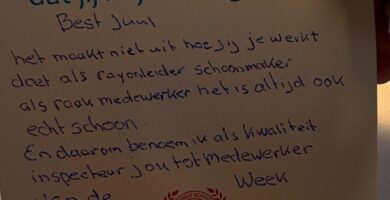 Best Juul
het maakt niet uit hoe jij je werkt
doet als rayonleider schoonmaker
als raak medewerker het is altijd ook
echt schoon.
En daarom benoem ik als kwaliteit
inspecteur jou tot medewerker
van de Week